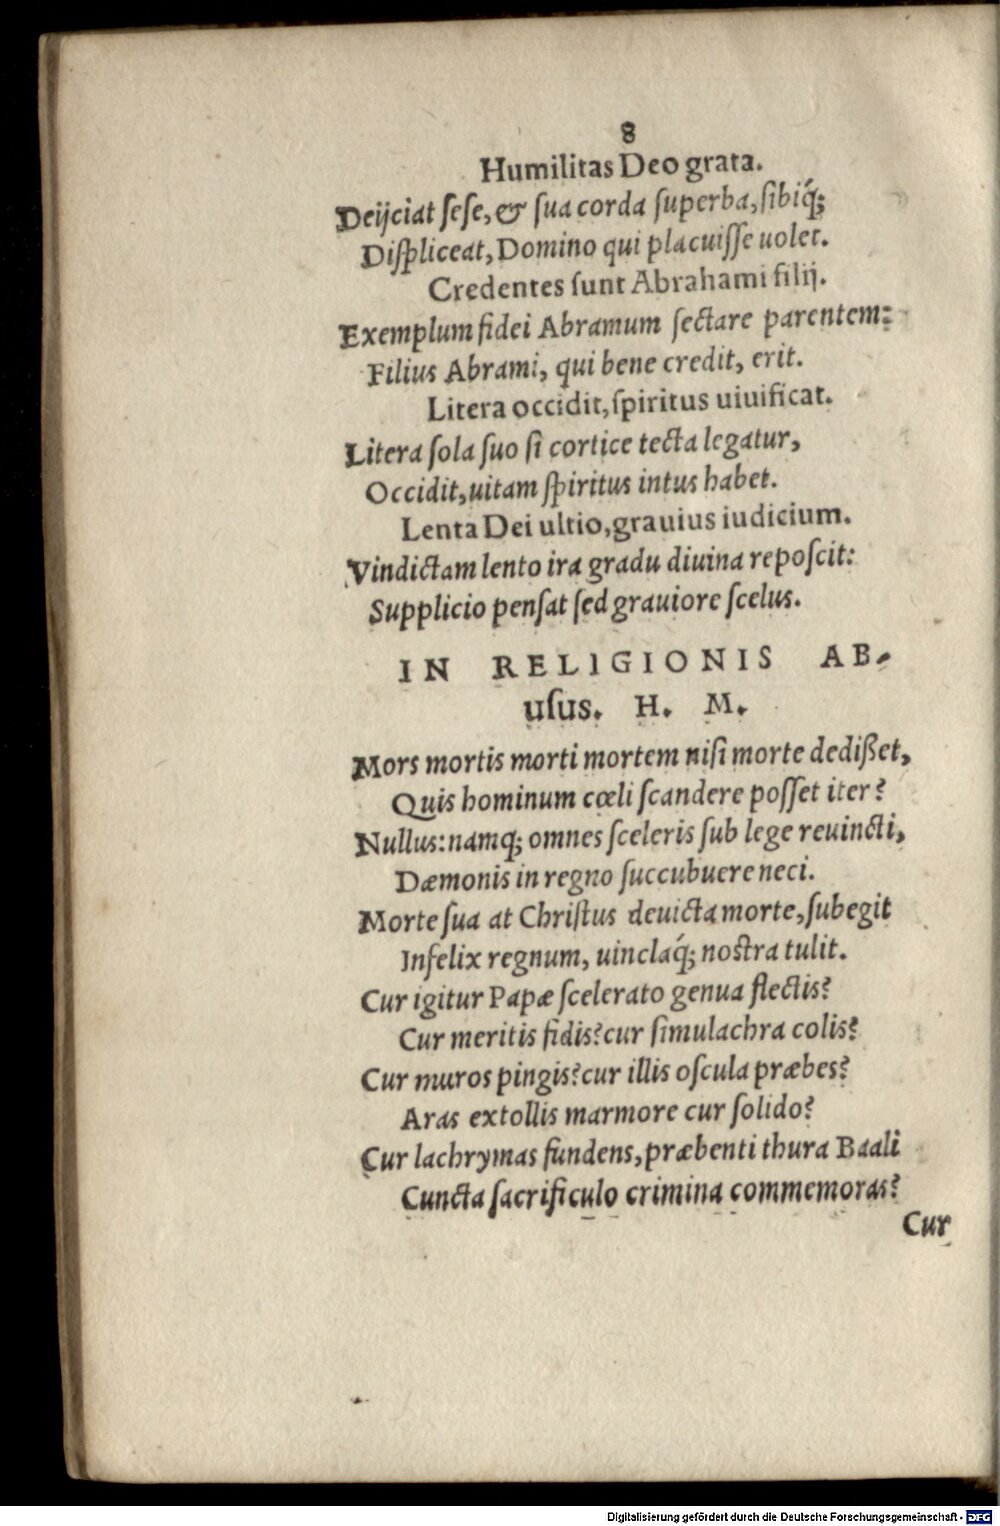 8
Humilitas Deo grata.
Deijciat ſeſe, & ſua corda ſuperba, ſibiq́;
Diſpliceat, Domino qui placuiſſe uolet.
Credentes ſunt Abrahami filij.
Exemplum fidei Abramum ſectare parentem:
Filius Abrami, qui bene credit, erit.
Litera occidit, ſpiritus uiuificat.
Litera ſola ſuo ſi cortice tecta legatur,
Occidit, uitam ſpiritus intus habet.
Lenta Dei ultio, grauius iudicium.
Vindictam lento ira gradu diuina repoſcit:
Supplicio penſat ſed grauiore ſcelus.
IN RELIGIONIS AB-
uſus. H. M.
Mors mortis morti mortem niſi morte dedißet,
Quis hominum cœli ſcandere poſſet iter?
Nullus: namq; omnes ſceleris ſub lege reuincti,
Dæmonis in regno ſuccubuere neci.
Morte ſua at Chriſtus deuicta morte, ſubegit
Infelix regnum, uinclaq́; noſtra tulit.
Cur igitur Papæ ſcelerato genua flectis?
Cur meritis fidis? cur ſimulachra colis?
Cur muros pingis? cur illis oſcula præbes?
Aras extollis marmore cur ſolido?
Cur lachrymas fundens, præbenti thura Baali
Cuncta ſacrificulo crimina commemoras?
Cur
Digitalisierung gefördert durch die Deutsche Forschungsgemeinschaft - DFG